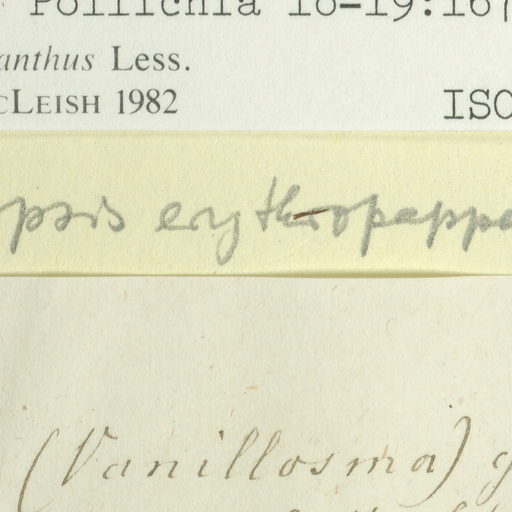 Pollichia 18-19:167
anthus Less.
cLEISH 1982
ISO
psis erythropappa
(Vanillosma) g